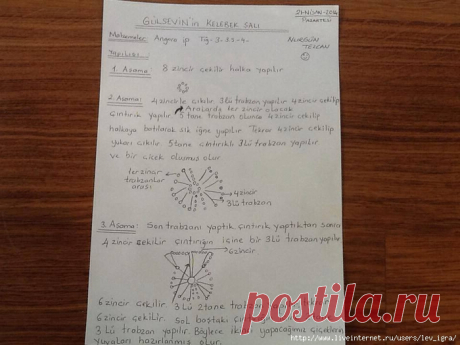 GÜLSEVİN'in KELEBEK ŞALI
21-NİSAN-2014
PAZARTESİ
Malzemeler: Angora ip. Tığ: 3-3.5-4.
NURGÜN
TEZCAN
Yapılışı:
1. Aşama: 8 zincir çekilir halka yapılır
2. Aşama: 4 zincirle çıkılır. 3lü trabzan yapılır 4 zincir çekilip
Aralarda ter zincir olacak
çıntırık yapılır. 5 tane trabzan olunca 4 zincir çekilip
halkaya batılarak sık iğne yapılır. Tekrar 4 zincir çekilip
yukarı çıkılır. 5 tane çıntırıklı 3lü trabzan yapılır
ve bir çiçek oluşmuş olur.
ter zincir
trabzanlar
arası
4 zincir
3lü trabzan
3. Aşama: Son trabzanı yaptık çıntırık yaptıktan sonra
4 zincir çekilir çıntırığın içine bir 3lü trabzan yapılır
6 zincir
6 zincir çekilir. 3lü 2 tane
6 zincir çekilir. Sol baştaki
3lü trabzan yapılır. Böylece
yuvaları hazırlanmış olur.
postila.ru
www.liveinternet.ru/users/lev_igra/